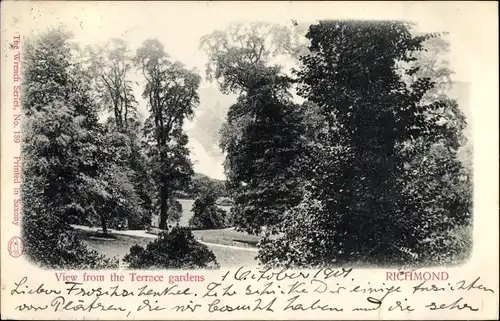 The Wrench Series, No. 189 Printed in Saxony
View from the Terrace gardens
RICHMOND
16 October 1901
Lieber Froschschenkel. Ich schicke Dir einige Ansichten
von Plätzen, die wir besucht haben und die sehr